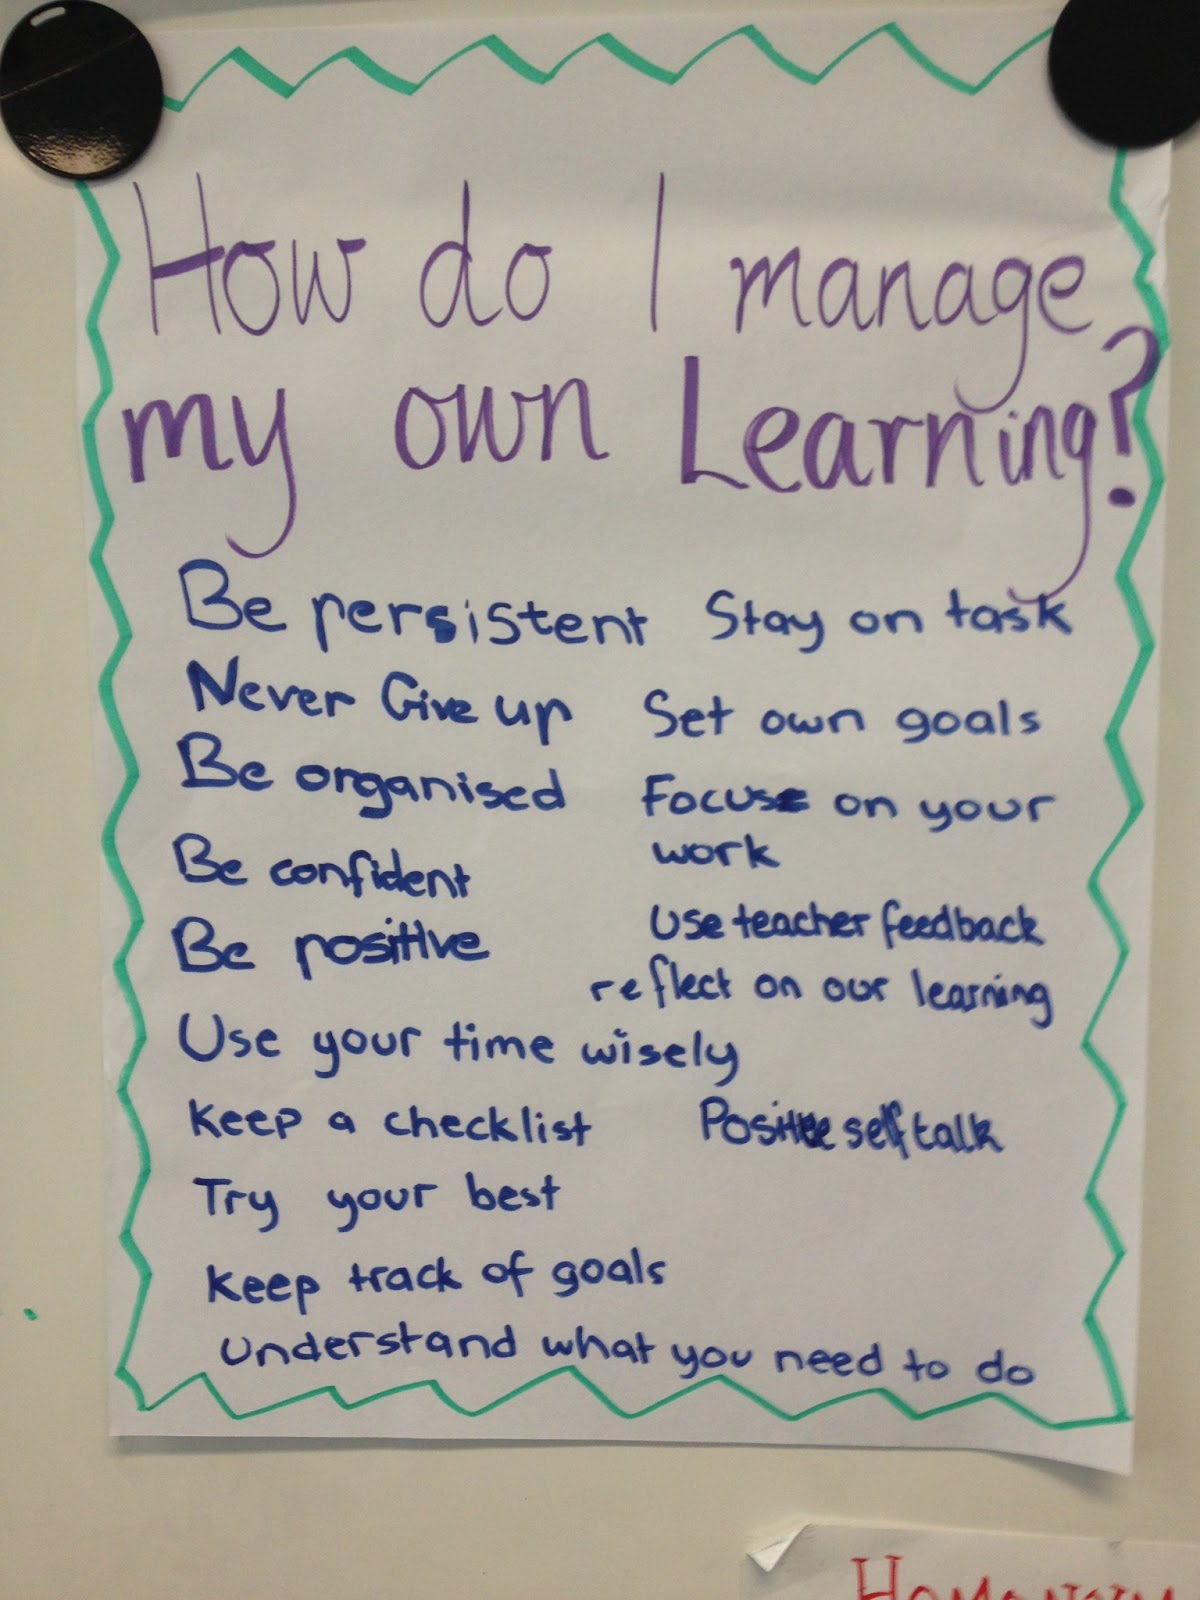 How do I manage
my own Learning?
Be persistent
Never Give up
Be organised
Be confident
Be positive
Use your time wisely
Keep a checklist
Try your best
Keep track of goals
Understand what you need to do
Stay on task
Set own goals
Focus on your
work
Use teacher feedback
reflect on our learning
Positive self talk